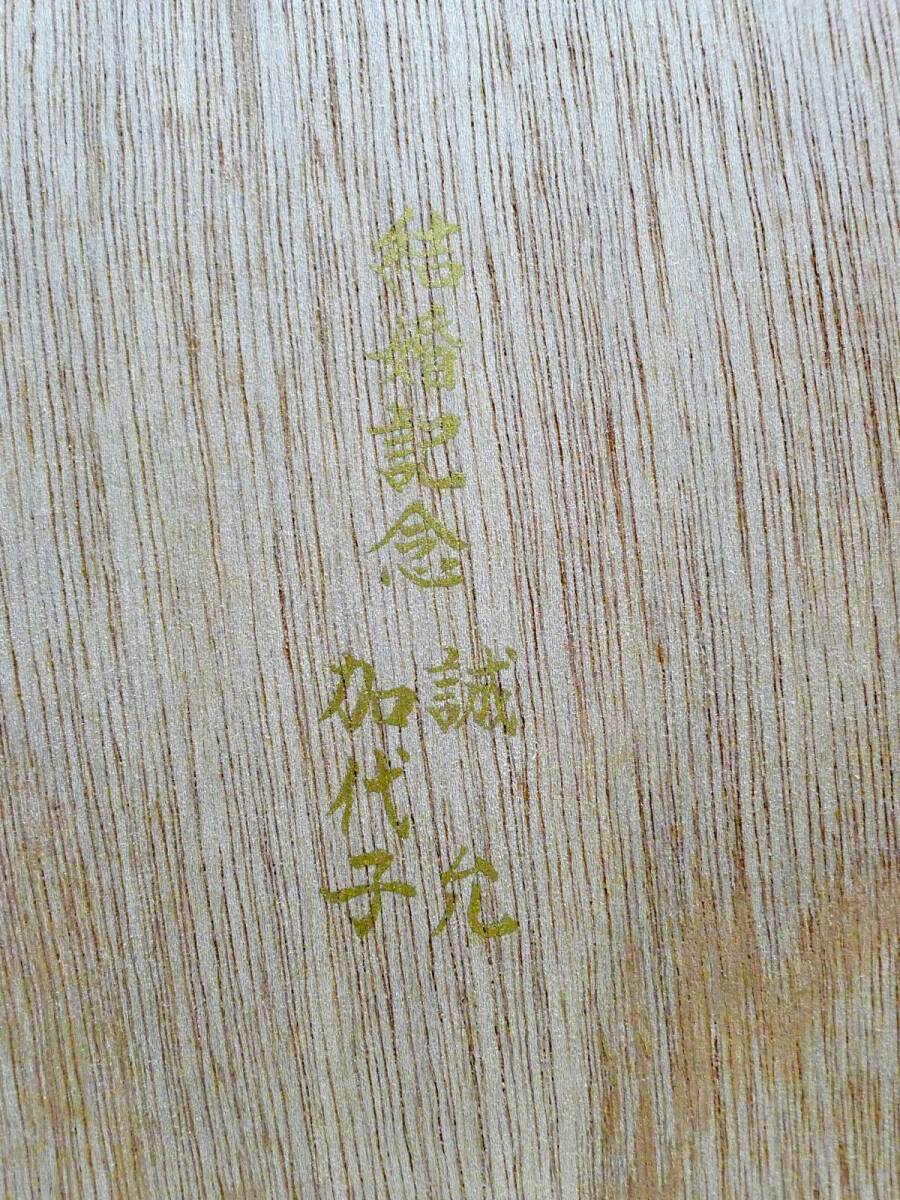 結婚記念
誠允
加代子